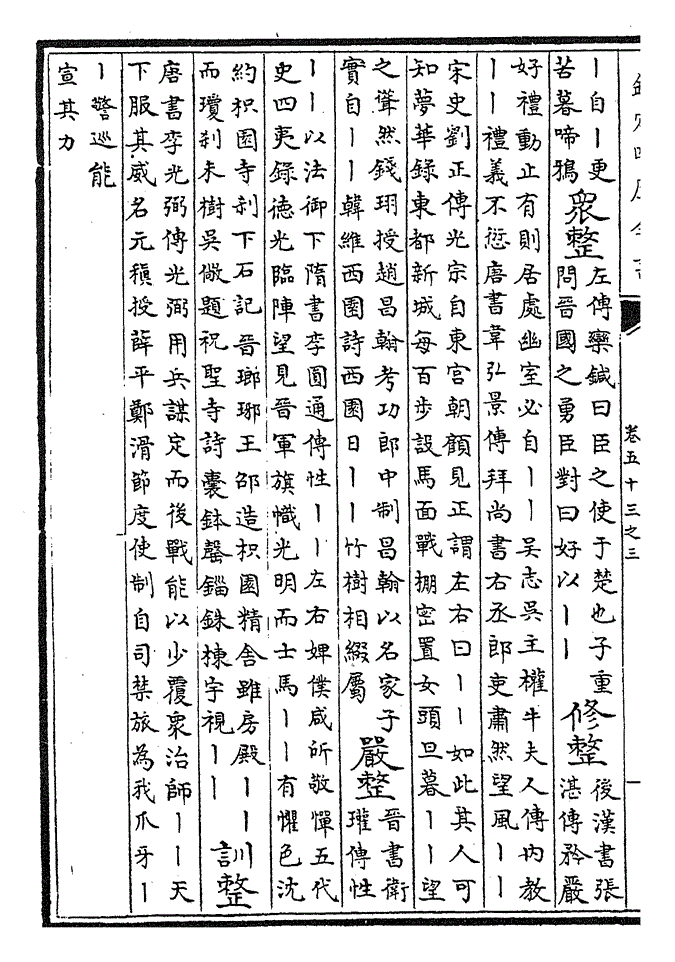 欽定四庫全書
卷五十三之三
一
丨自丨更
苦暮啼鴉
衆整
左傳欒鍼曰臣之使于楚也子重
問晉國之勇臣對曰好以丨丨
修整
後漢書張
湛傳矜嚴
好禮動止有則居處幽室必自丨丨吳志吳主權牛夫人傳内教
丨丨禮義不愆唐書韋弘景傳拜尚書右丞郎吏肅然望風丨丨
宋史劉正傳光宗自東宮朝顧見正謂左右曰丨丨如此其人可
知夢華錄東都新城每百步設馬面戰棚密置女頭旦暮丨丨望
之聳然錢珝授趙昌翰考功郎中制昌翰以名家子
實自丨丨韓維西園詩西園日丨丨竹樹相綴屬
嚴整
晉書衛
瓘傳性
丨丨以法御下隋書李圓通傳性丨丨左右婢僕咸所敬憚五代
史四夷錄德光臨陣望見晉軍旗幟光明而士馬丨丨有懼色沈
約枳園寺刹下石記晉瑯琊王邵造枳園精舍雖房殿丨丨
而瓊刹未樹吳儆題祝聖寺詩囊鉢罄錙銖棟宇視丨丨
訓整
唐書李光弼傳光弼用兵謀定而後戰能以少覆衆治師丨丨天
下服其威名元稹授薛平鄭滑節度使制自司禁旅為我爪牙丨
丨警巡能
宣其力